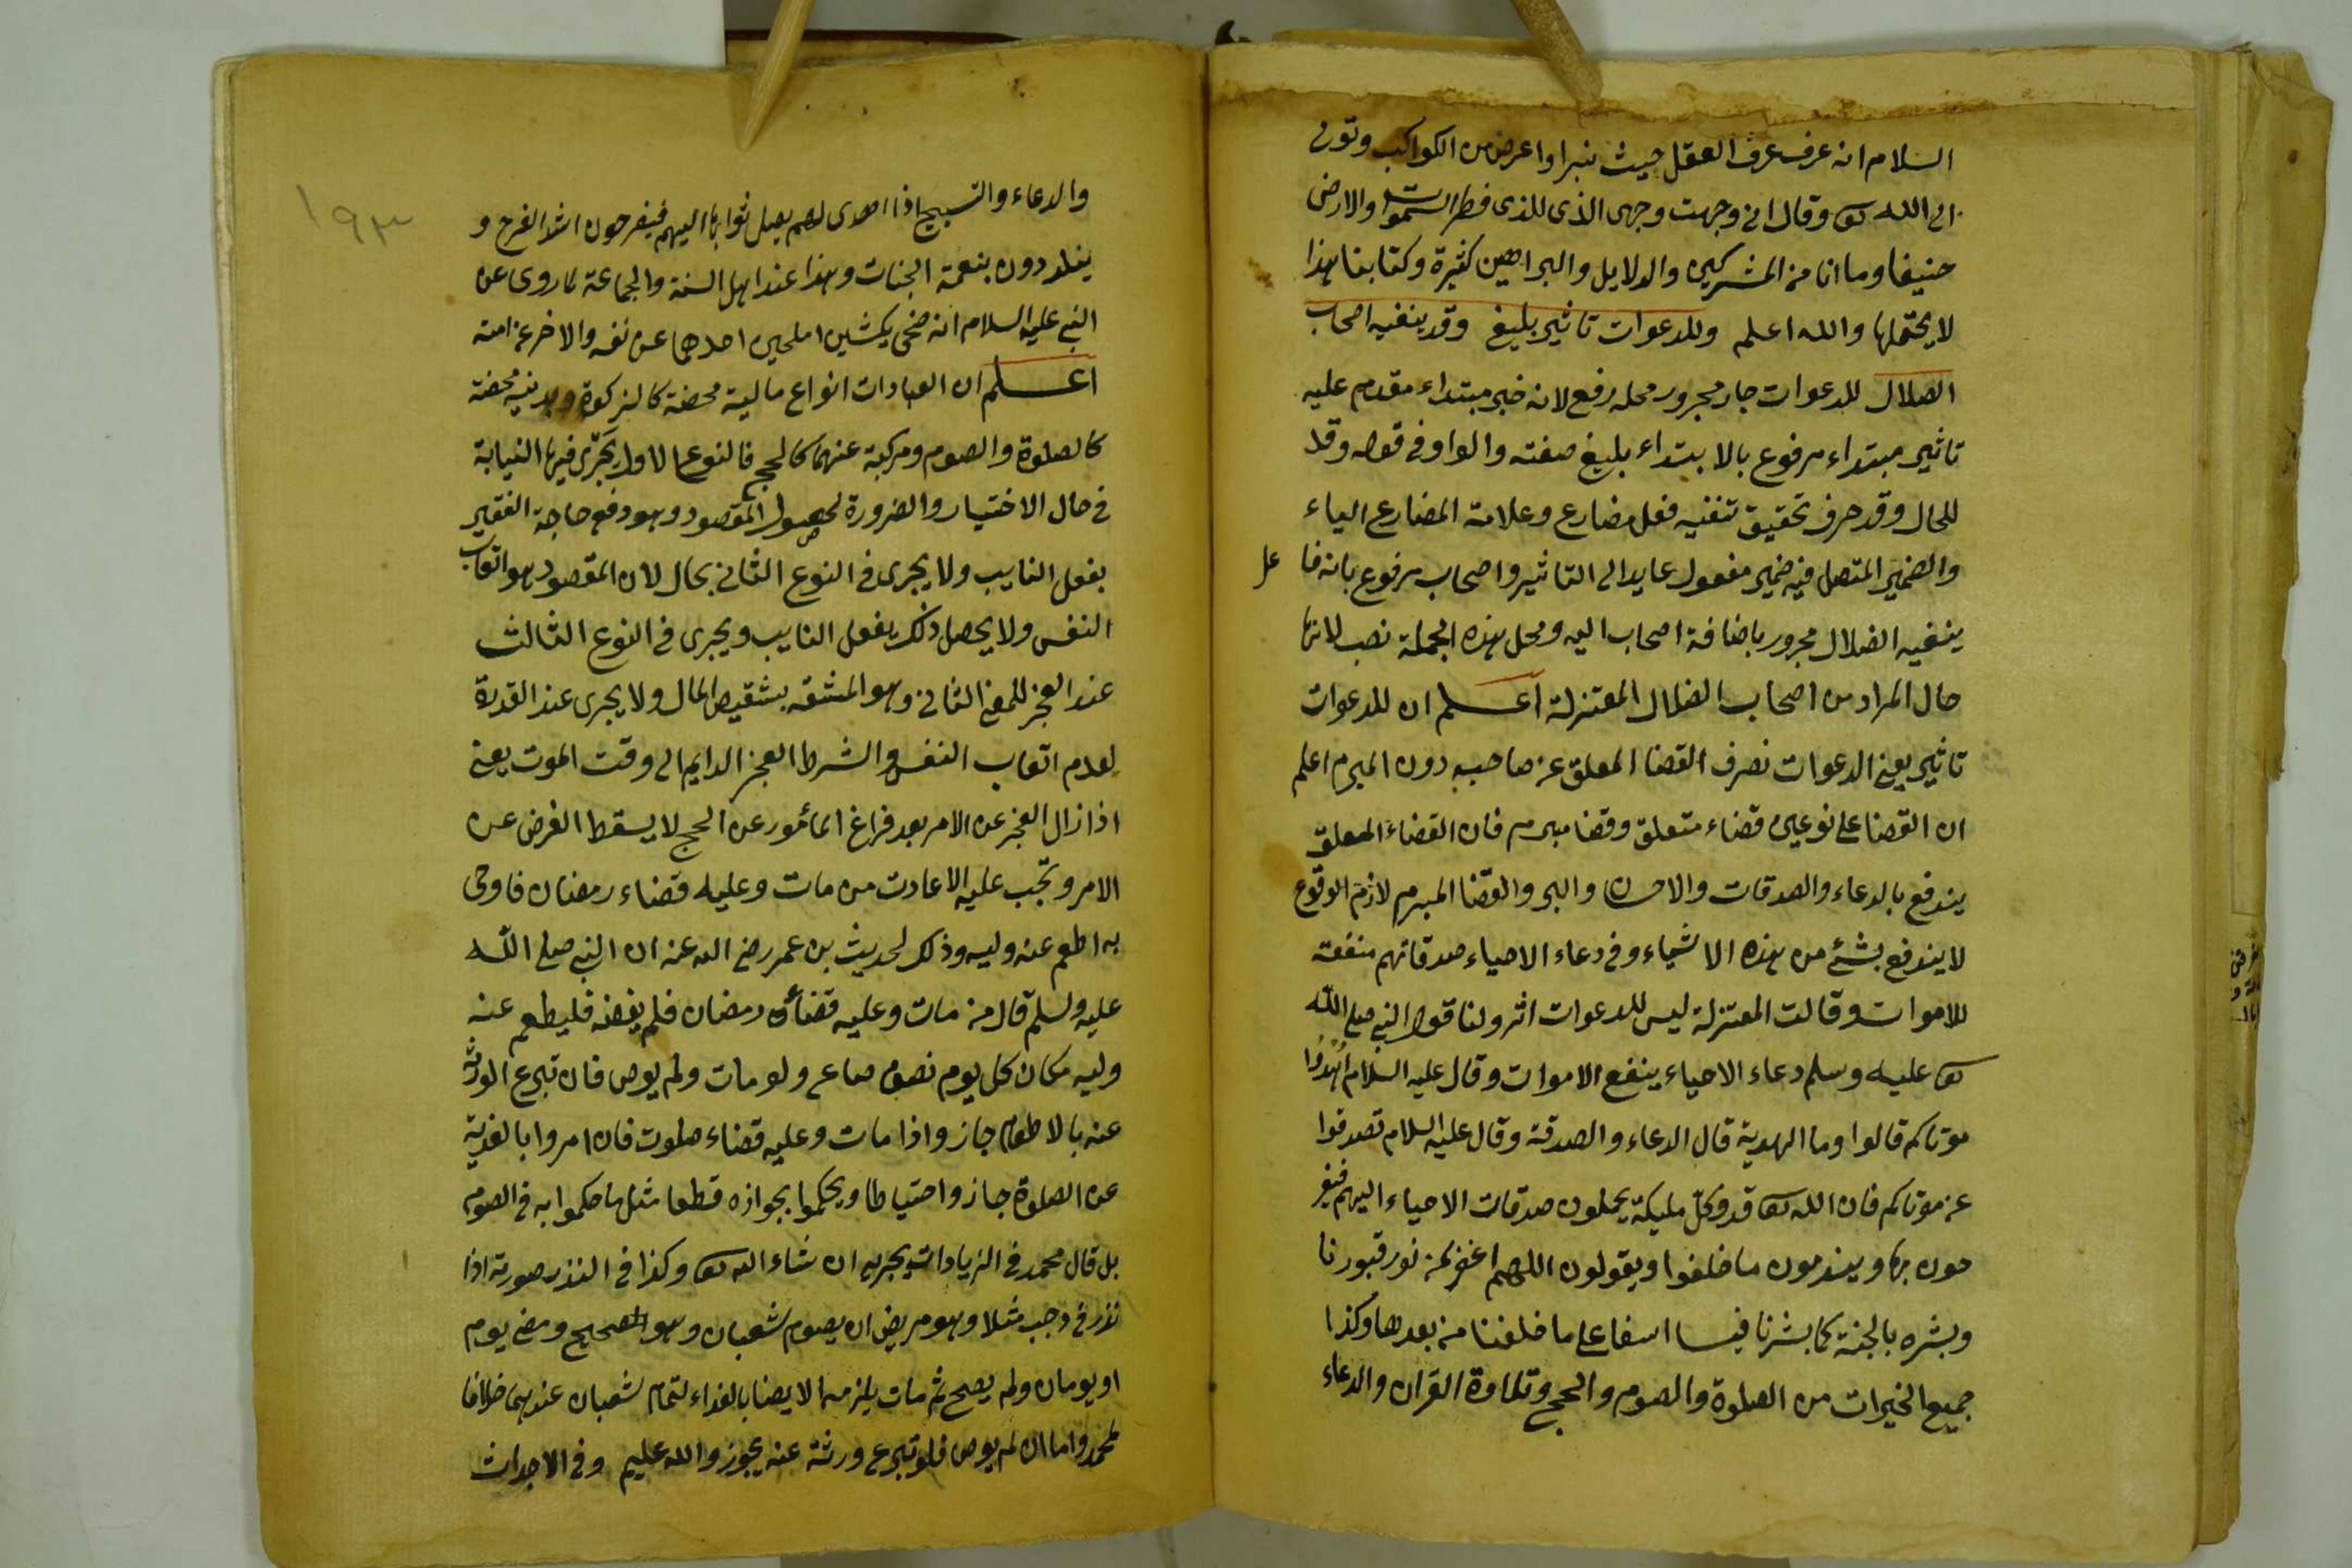 السلام انه عرف عرف العقل حيث تبرا واعرض من الكواكب وتوى
الى الله تع وقال انى وجهت وجهى الذى للذى فطر السموات والارض
حنيفا وما انا من المشركين والدلايل والبراهين كثيرة وكتابنا هذا
لا يحتملها والله اعلم وللدعوات تاثير بليغ وقد ينفيه اصحاب
الضلال للدعوات جار مجرور محله رفع لانه خبر مبتداء مقدم عليه
تاثير مبتداء مرفوع بالابتداء بليغ صفته والواو فى قوله وقد
للحال وقد حرف تحقيق تنفيه فعل مضارع وعلامة المضارع الياء
والضمير المتصل فيه ضمير مفعول عايد الى التاثير واصحاب مرفوع بانه فا عل
ينفيه الضلال مجرور باضافة اصحاب اليه ومحل هذه الجملة نصب لانها
حال المراد من اصحاب الضلال المعتزلة اعلم ان للدعوات
تاثير يعنى الدعوات تصرف القضا المعلق عن صاحبه دون المبرم اعلم
ان القضا على نوعين قضاء متعلق وقضا مبرم فان القضاء المعلق
يندفع بالدعاء والصدقات والاحسان والبر والقضا المبرم لازم الوقوع
لا يندفع بشئ من هذه الاشياء وفى دعاء الاحياء صدقاتهم منفعة
للاموات وقالت المعتزلة ليس للدعوات اثر ولنا قول النبى صلى الله
تع عليه وسلم دعاء الاحياء ينفع الاموات وقال عليه السلام اهدوا
موتاكم قالوا وما الهدية قال الدعاء والصدقة وقال عليه السلام تصدقوا
عن موتاكم فان الله تع قد وكل مليكة يحملون صدقات الاحياء اليهم فيفر
حون بها ويندمون ما خلفوا ويقولون اللهم اغفر لمن نور قبورنا
وبشره بالجنة كما بشرنا فيا اسفا على ما خلفنا من بعدها وكذا
جميع الخيرات من الصلوة والصوم والحج وتلاوة القران والدعاء
١٩٣
والدعاء والتسبيح اذا اهدى لهم يصل ثوابها اليهم فيفرحون اشد الفرح و
يتلددون بنعمة الجنات وهذا عند اهل السنة والجماعة لما روى عن
النبى عليه السلام انه ضحى بكبشين املحين احدهما عن نفسه والاخر عن امته
اعلم ان العبادات انواع مالية محضة كالزكوة وبدنية محضة
كالصلوة والصوم ومركبة عنهما كالحج فالنوع الاول يجرى فيها النيابة
فى حال الاختيار والضرورة لحصول المقصود وهو دفع حاجة الفقير
بفعل النايب ولا يجرى فى النوع الثانى بحال لان المقصود هو اتعاب
النفس ولا يحصل ذلك بفعل النايب ويجرى فى النوع الثالث
عند العجز للمعنى الثانى وهو المشقة بتنقيص المال ولا يجرى عند القدرة
لعدم اتعاب النفس والشرط العجز الدايم الى وقت الموت يعنى
اذا زال العجز عن الامر بعد فراغ المأمور عن الحج لا يسقط الفرض عن
الامر وتجب عليه الاعادت من مات وعليه قضاء رمضان فاوصى
به اطعم عنه وليه وذلك لحديث بن عمر رضى الله عنه ان النبى صلى الله
عليه وسلم قال من مات وعليه قضاء رمضان فلم يقضه فليطعم عنه
وليه مكان كل يوم نصف صاع ولو مات ولم يوص فان تبرع الورثة
عنه بالاطعام جاز واذا مات وعليه قضاء صلوت فان امروا بالفدية
عن الصلوة جاز واحتياطا ويحكموا بجوازه قطعا مثل ما حكموا به فى الصوم
بل قال محمد فى الزيادات يجزيه ان شاء الله تع وكذا فى النذر صورته اذا
نذر فى رجب مثلا وهو مريض ان يصوم شعبان وهو صحيح ومضى يوم
او يومان ولم يصح ثم مات يلزمه الايصا بالفداء لتمام شعبان عندهما خلافا
لمحمد واما ان لم يوص فلو تبرع ورثة عنه يجوز والله عليم وفى الاجداث